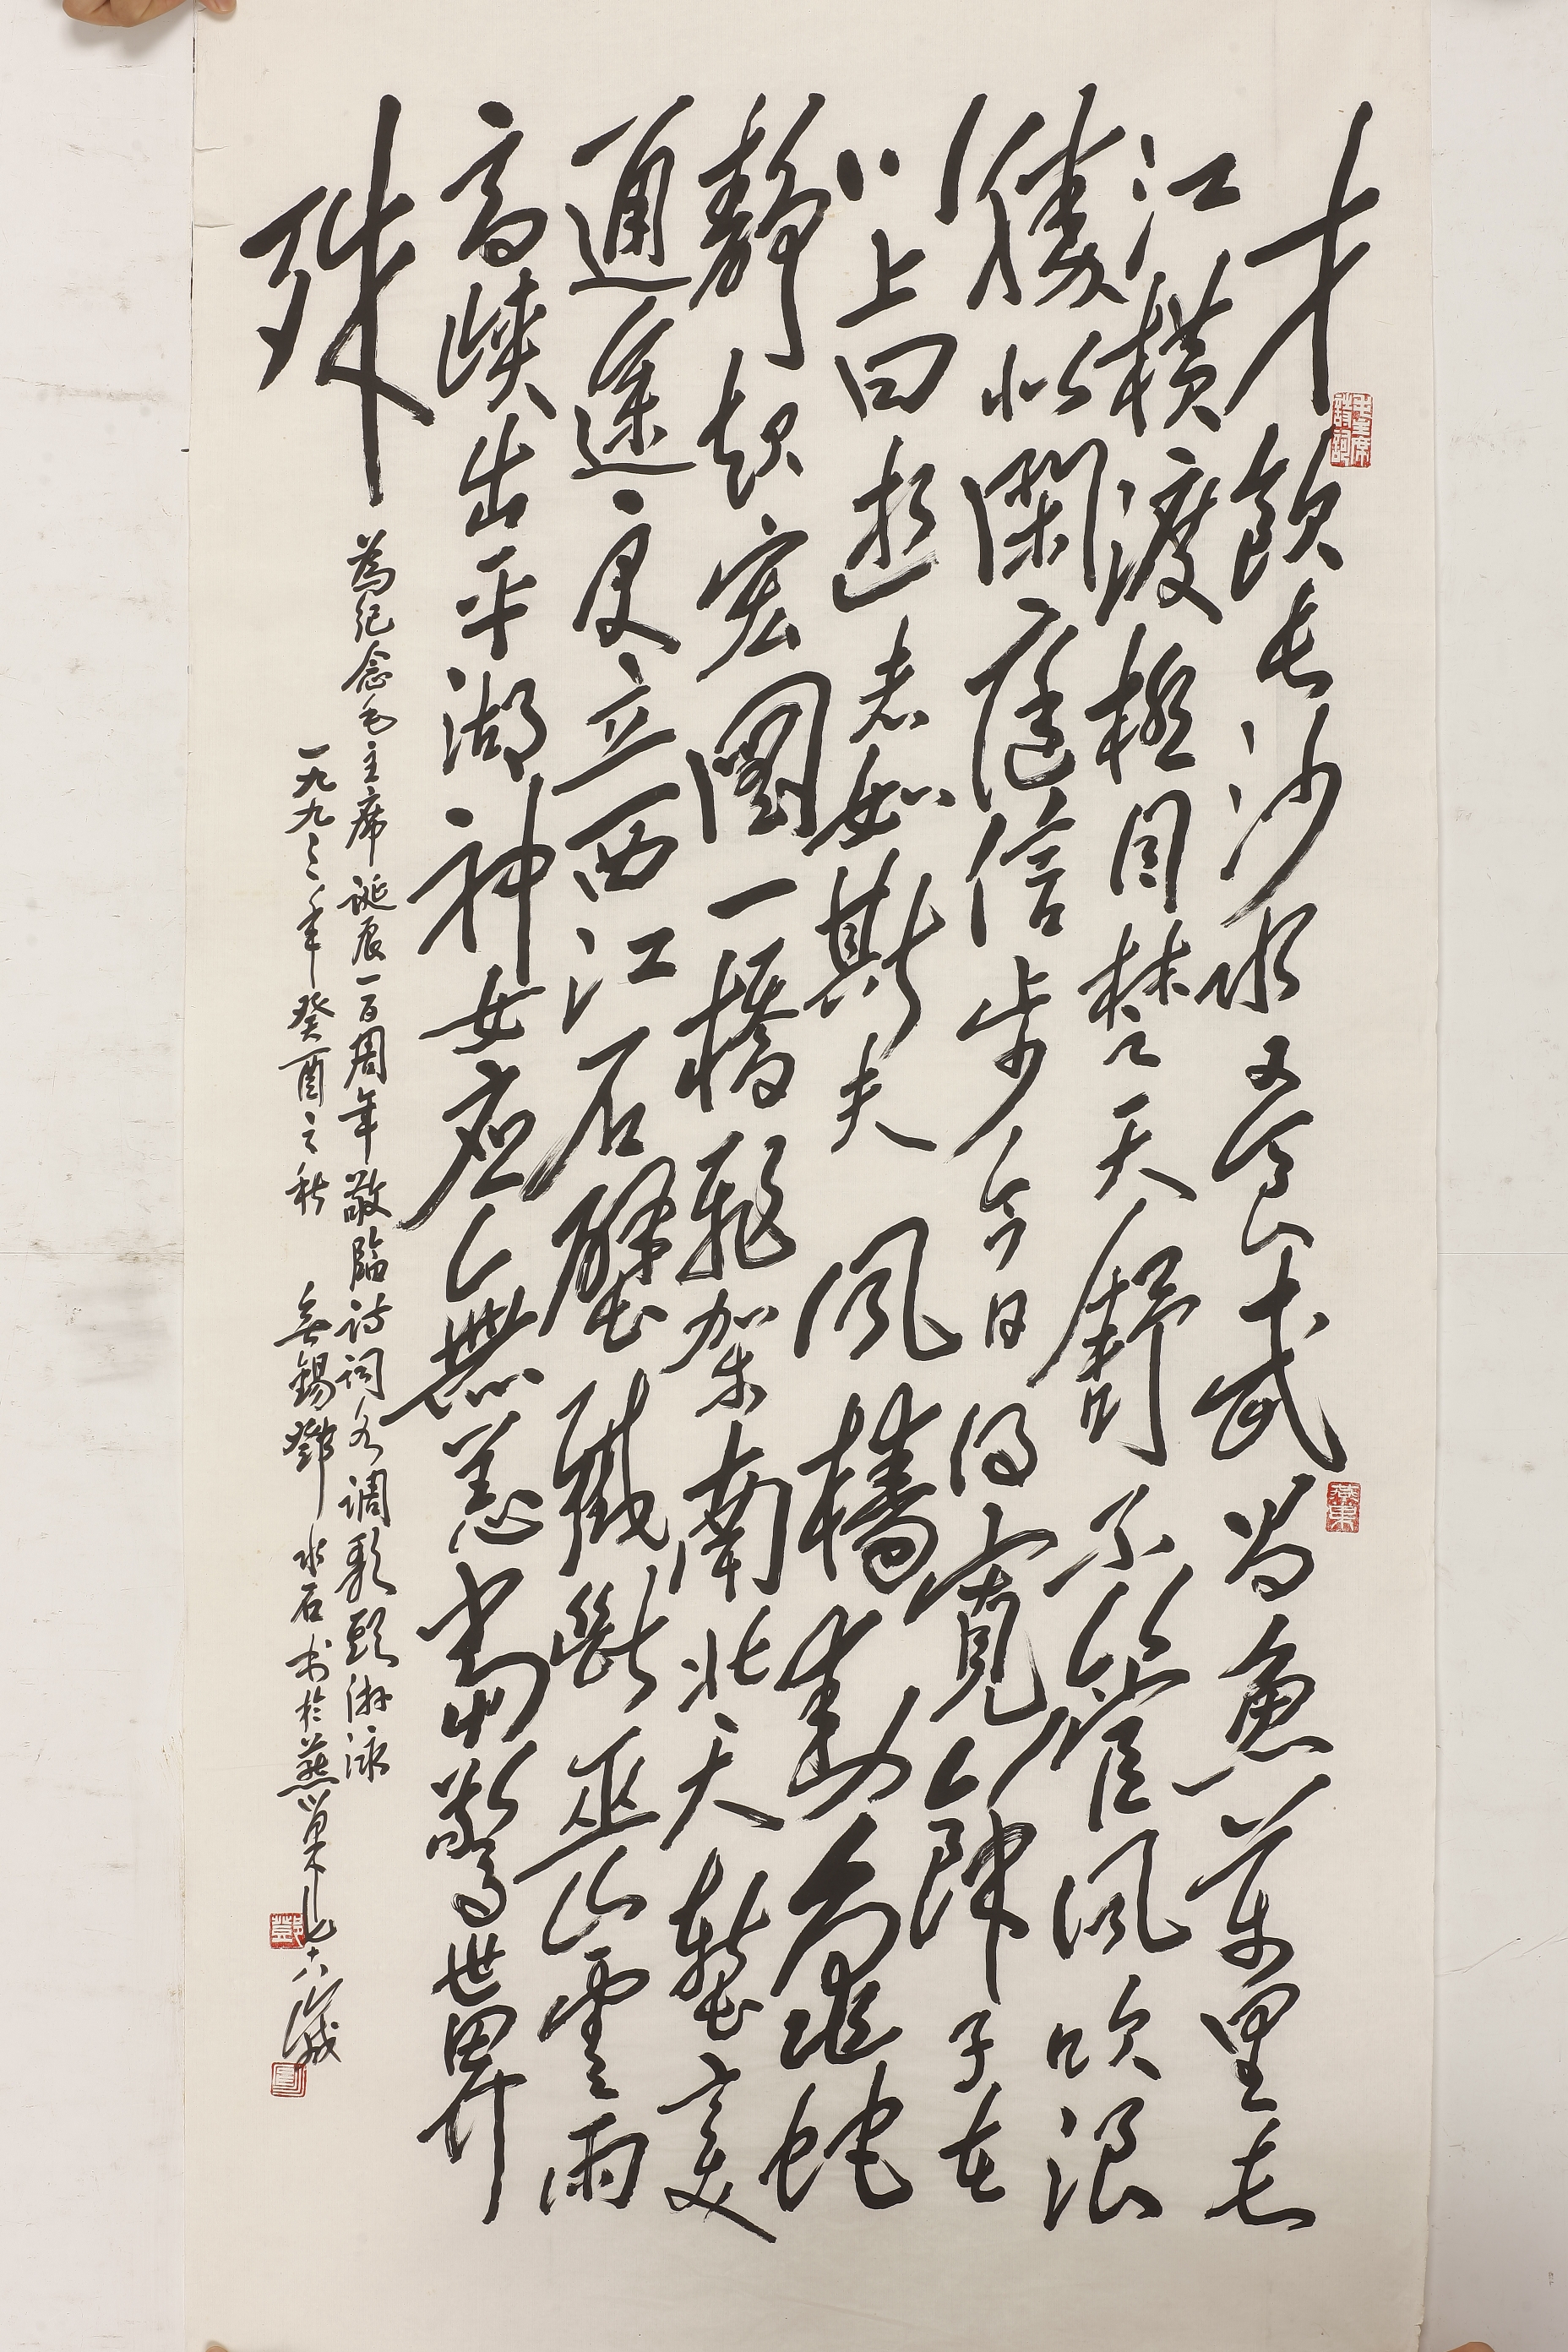 才飲长沙水又食武昌魚萬里长
江橫渡極目楚天舒不管風吹浪
勝似閑庭信步今日得寬餘子在
川上曰逝者如斯夫風檣動龜蛇
靜起宏圖一橋飛架南北天塹變
通途更立西江石壁截斷巫山雲雨
高峽出平湖神女應無恙當驚世界
殊
為纪念毛主席诞辰一百周年敬臨诗词水调歌頭游泳
一九九三年癸酉之秋 無錫鄧水石书於燕巢七十八歲
毛主席詩詞
燕巢